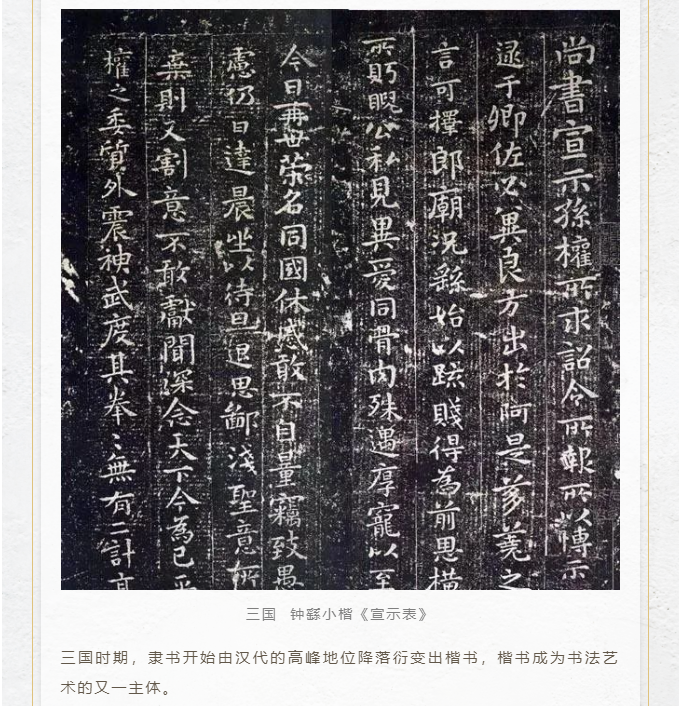 尚書宣示孫權所求詔令所報所以博示
逮于卿佐必冀良方出於阿是芻蕘之
言可擇郎廟況繇始以疏賤得為前恩橫
所眄睨公私見異愛同骨肉殊遇厚寵以至
今日再世荣名同國休慼敢不自量竊致愚
慮仍日達晨坐以待旦退思鄙淺聖意所
棄則又割意不敢獻聞深念天下今為已平
權之委質外震神武度其拳〻無有二計高
三国 钟繇小楷《宣示表》
三国时期，隶书开始由汉代的高峰地位降落衍变出楷书，楷书成为书法艺
术的又一主体。